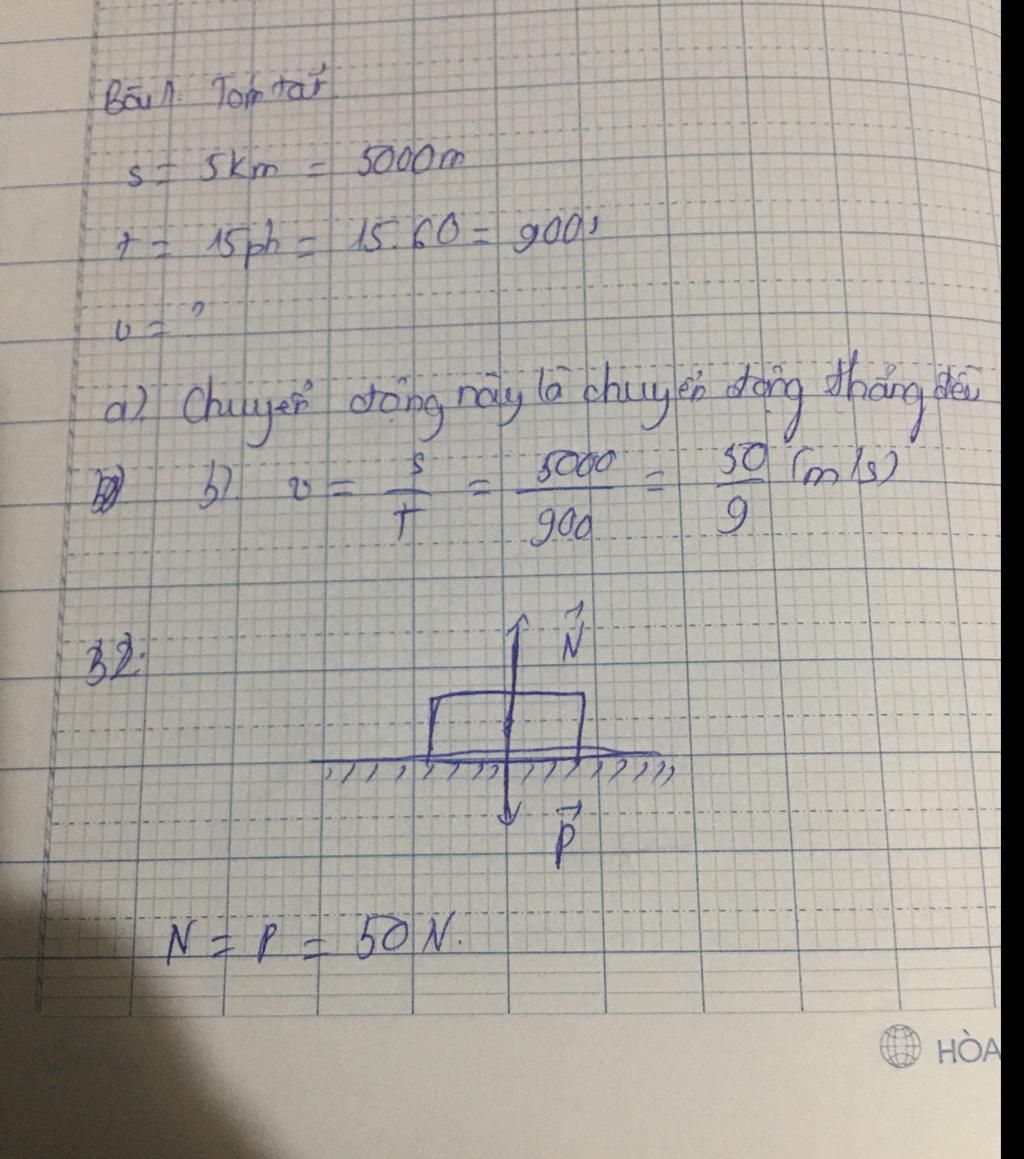 Bài 1. Tóm tắt
s = 5km = 5000m
t = 15ph = 15.60 = 900s
v = ?
a) Chuyển động này là chuyển động thẳng đều
b) v = s/t = 5000/900 = 50/9 (m/s)
B2:
N
P
N = P = 50 N.
HÒA